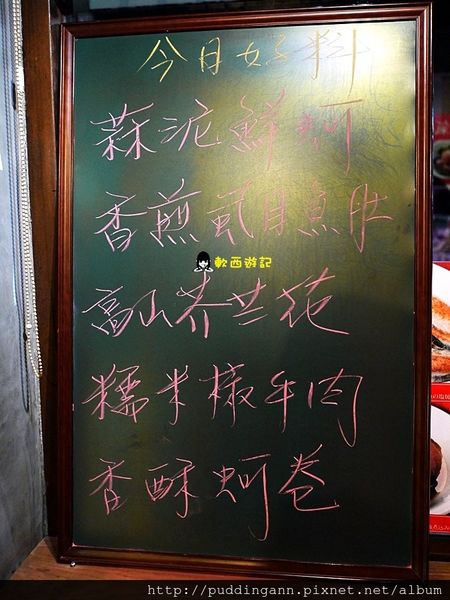 今日好料
蒜泥鮮蚵
香煎虱目魚肚
軟西遊記
高山芥兰花
糯米椒牛肉
香酥蚵卷
http://puddingann.pixnet.net/album